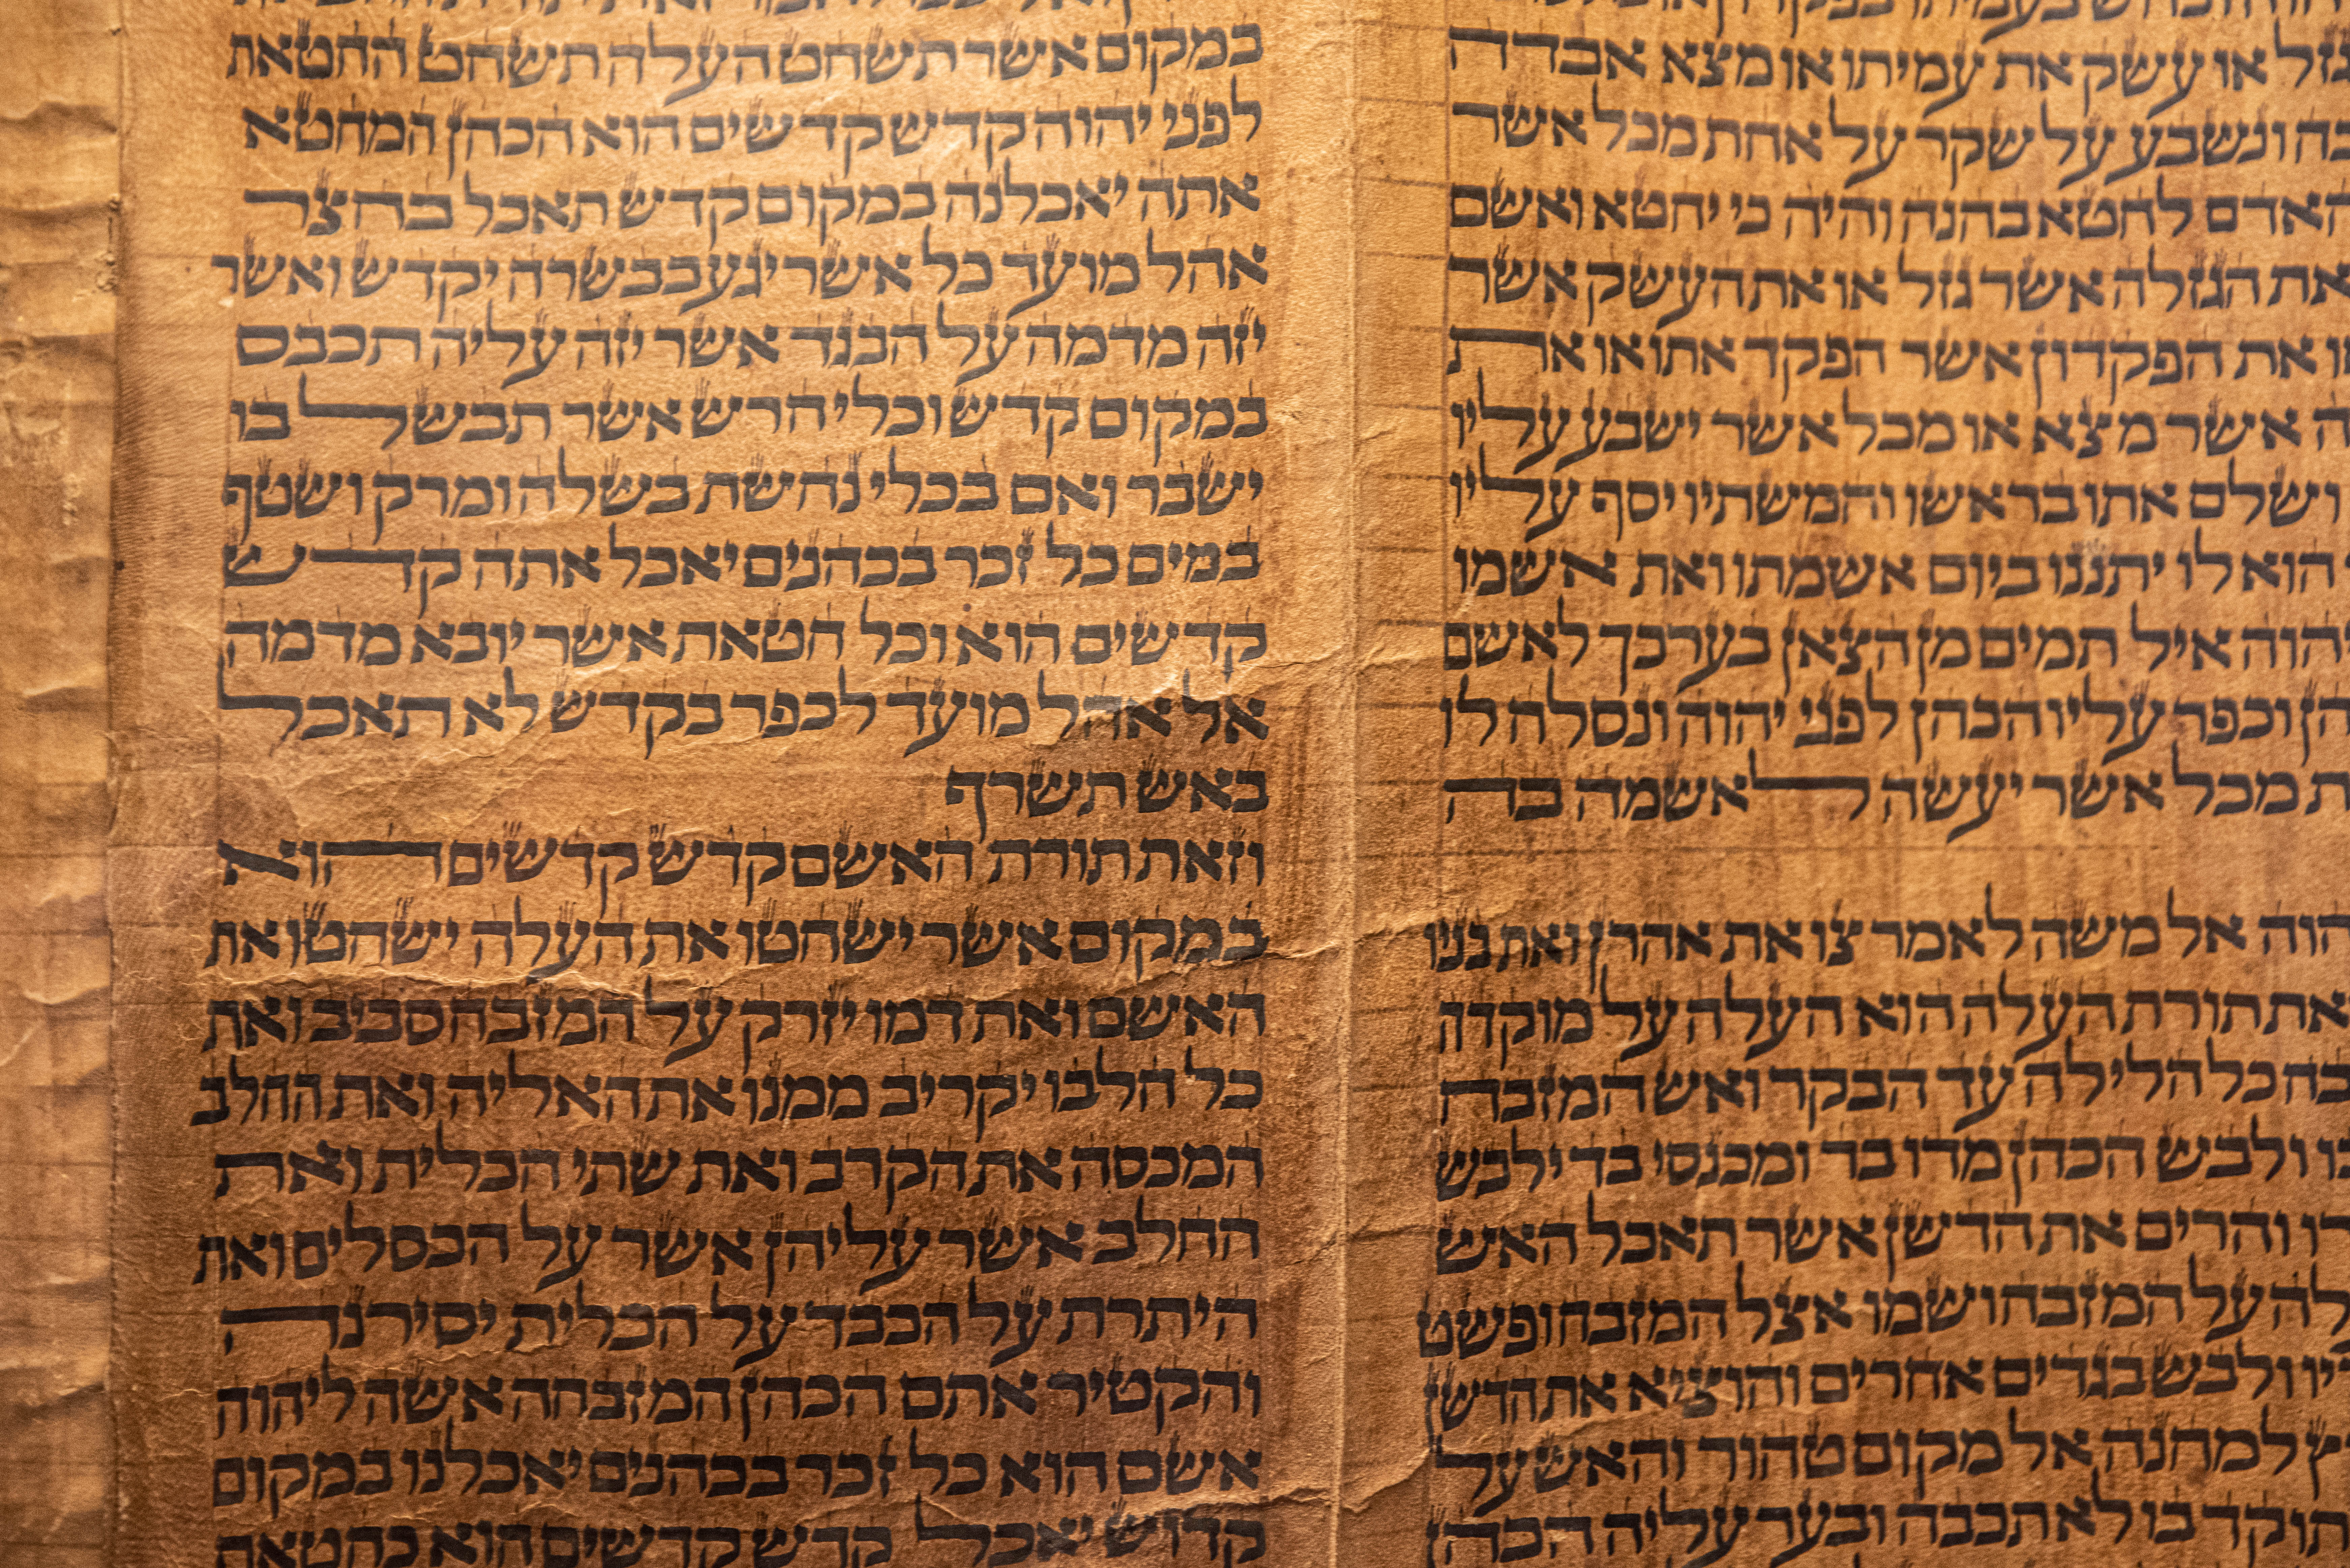 גזל או עשק את עמיתו או מצא אבדה
בה ונשבע על שקר על אחת מכל אשר
האדם לחטא בהנה והיה כי יחטא ואשם
את הגזלה אשר גזל או את העשק אשר
ו את הפקדון אשר הפקד אתו או את
ה אשר מצא או מכל אשר ישבע עליו
ושלם אתו בראשו וחמשתיו יסף עליו
הוא לו יתננו ביום אשמתו ואת אשמו
הוה איל תמים מן הצאן בערכך לאשם
הן וכפר עליו הכהן לפני יהוה ונסלח לו
ת מכל אשר יעשה לאשמה בה
הוה אל משה לאמר צו את אהרן ואת בניו
את תורת העלה הוא העלה על מוקדה
בח כל הלילה עד הבקר ואש המזבח
בו ולבש הכהן מדו בד ומכנסי בד ילבש
רו והרים את הדשן אשר תאכל האש
לה על המזבח ושמו אצל המזבח ופשט
יו ולבש בגדים אחרים והוציא את הדשן
ץ למחנה אל מקום טהור והאש על
תוקד בו לא תכבה ובער עליה הכהן
במקום אשר תשחט העלה תשחט החטאת
לפני יהוה קדש קדשים הוא הכהן המחטא
אתה יאכלנה במקום קדש תאכל בחצר
אהל מועד כל אשר יגע בבשרה יקדש ואשר
יזה מדמה על הבגד אשר יזה עליה תכבס
במקום קדש וכלי חרש אשר תבשל בו
ישבר ואם בכלי נחשת בשלה ומרק ושטף
במים כל זכר בכהנים יאכל אתה קדש
קדשים הוא וכל חטאת אשר יובא מדמה
אל אהל מועד לכפר בקדש לא תאכל
באש תשרף
וזאת תורת האשם קדש קדשים הוא
במקום אשר ישחטו את העלה ישחטו את
האשם ואת דמו יזרק על המזבח סביב ואת
כל חלבו יקריב ממנו את האליה ואת החלב
המכסה את הקרב ואת שתי הכלית ואת
החלב אשר עליהן אשר על הכסלים ואת
היתרת על הכבד על הכלית יסירנה
והקטיר אתם הכהן המזבחה אשה ליהוה
אשם הוא כל זכר בכהנים יאכלנו במקום
קדוש יאכל קדש קדשים הוא כחטאת